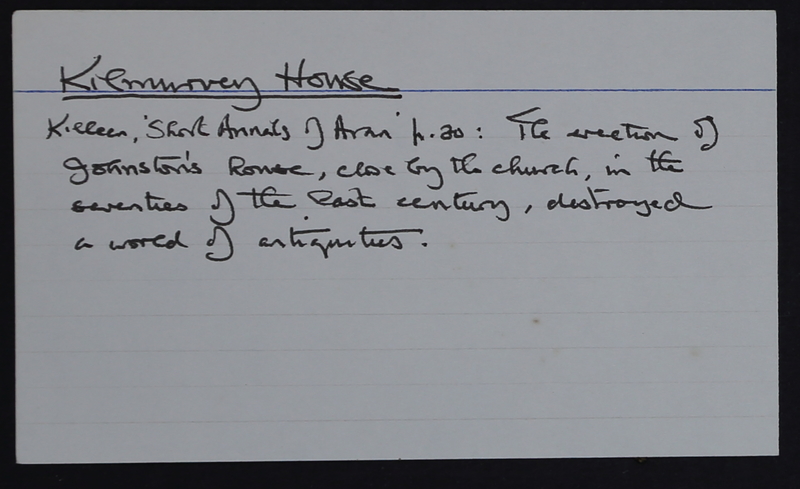 Kilmurvey House
Killeen, 'Short Annals of Aran' p.20: The erection of
Johnston's house, close by the church, in the
seventies of the last century, destroyed
a world of antiquities.